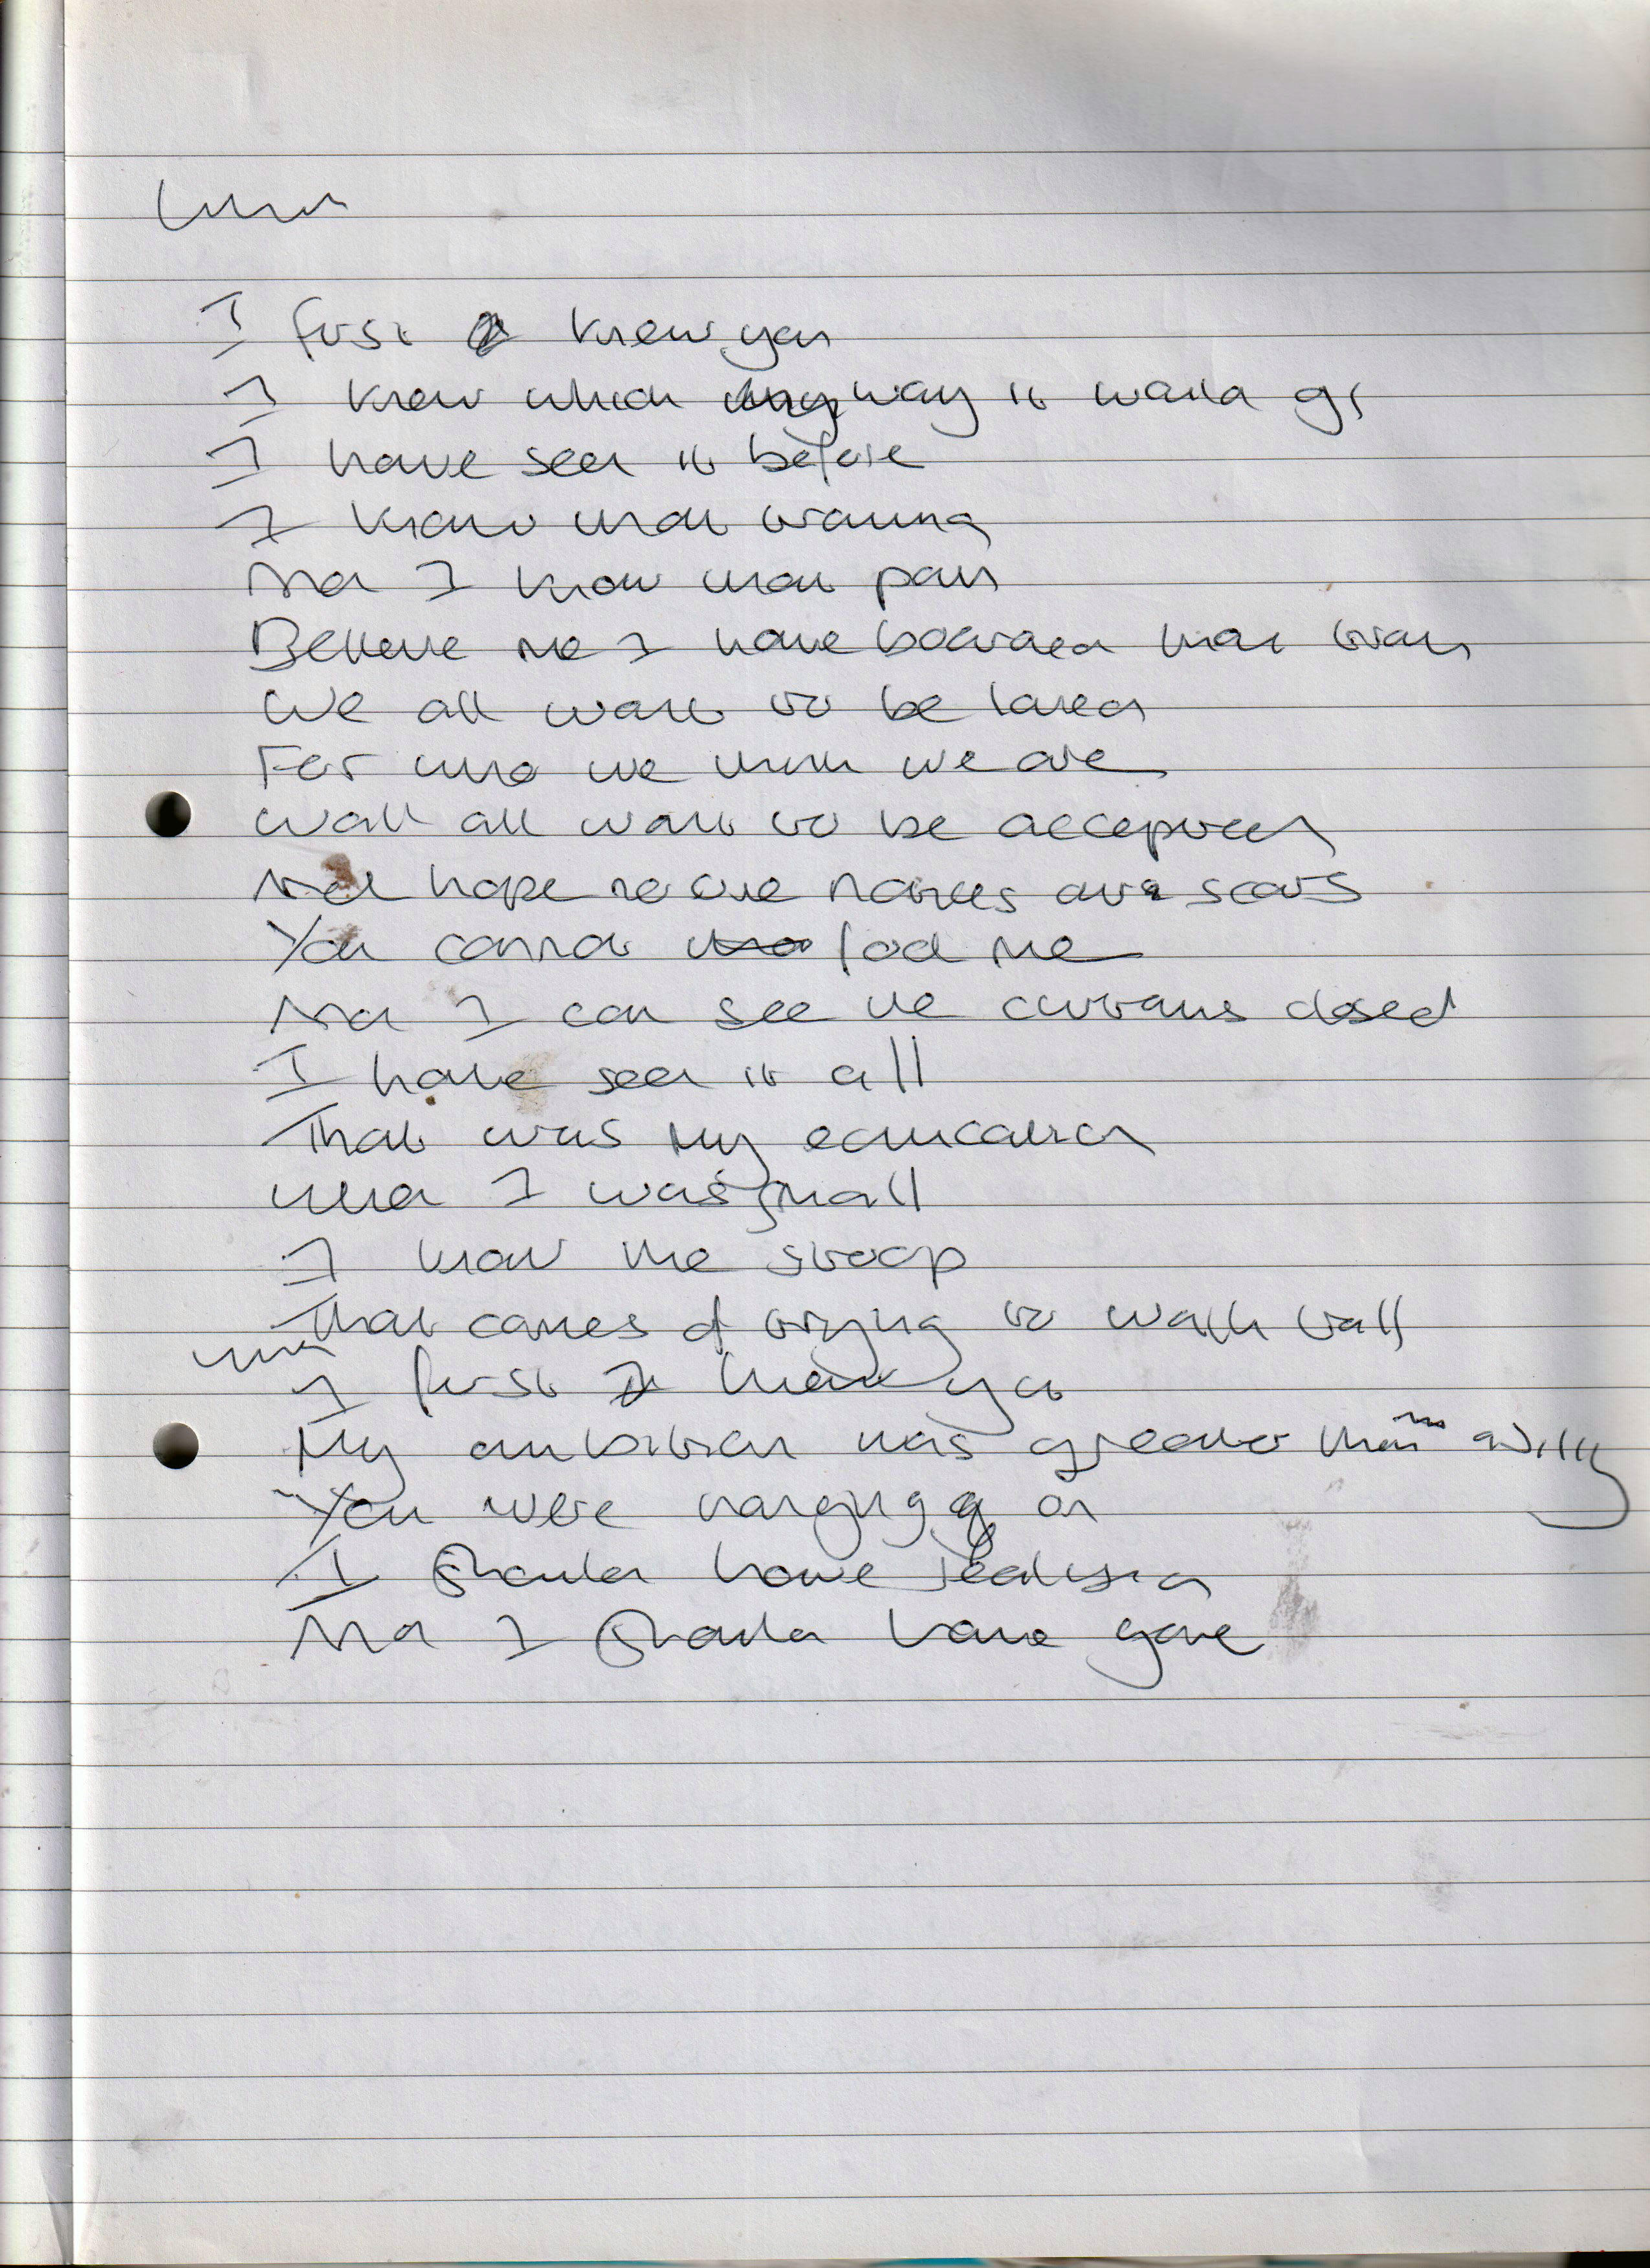 When
I first knew you
I knew which way it would go
I have seen it before
I know that trauma
And I know that pain
Believe me I have boarded that train
We all want to be loved
For who we think we are
We all want to be accepted
And hope no one notices our scars
You cannot fool me
And I can see the curtains closed
I have seen it all
That was my education
When I was small
I know the stoop
That comes of trying to walk tall
When
I first knew you
My ambition was greater than my ability
You were hanging on
I should have realised
And I should have gone